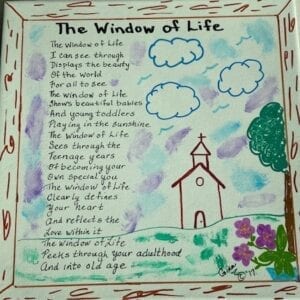 The Window of Life
The Window of Life
I can see through
Displays the beauty
Of the world
For all to see
The window of Life
Shows beautiful babies
And young toddlers
Playing in the sunshine
The Window of Life
Sees through the
Teenage years
Of becoming your
Own special you
The Window of Life
Clearly defines
Your heart
And reflects the
Love within it
The Window of Life
Peeks through your adulthood
And into old age